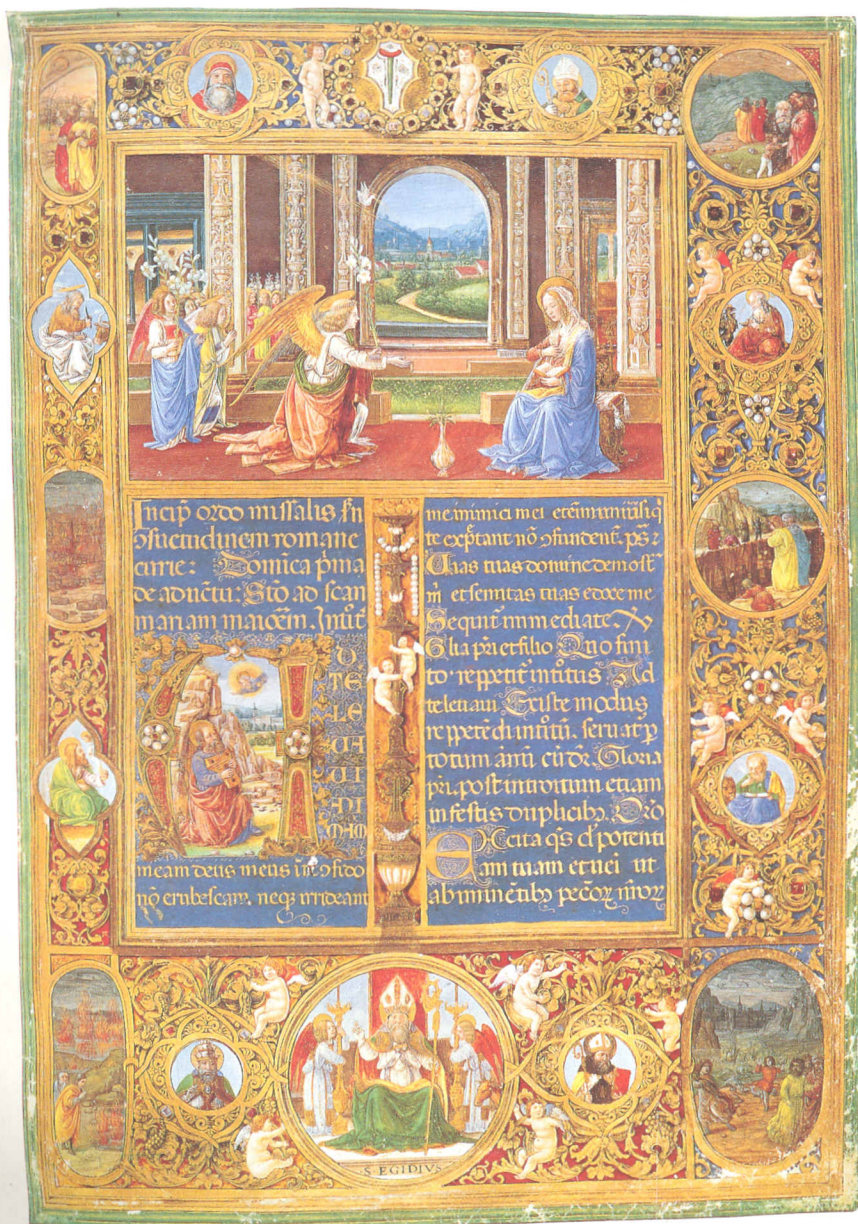 Incip̄ ordo missalis s̄n
ꝯsuetudinem romane
curie: Domīca p̄ma
de aduētu: Stō ad scan
mariam maiorēm. Introit̄
AD
TE LE
UAUI
ANI
MAM
meam deus meus in te ꝯfido
nō erubescam. neqꝫ irrideant
me inimici mei etenim uniūsi q
te exp̄tant nō ꝯfundent̄. ps̄
Uias tuas domine demōst̄
m̄ et semitas tuas edoce me
Sequit̄ immediate. V
Glīa pr̄i et filio Quo fini
to reppetit̄ introitus Ad
te leuaui. Et iste modus
reppetēdi introitū. seruat̄ p
totum annū cū dr̄. Gloria
pr̄i. post introitum etiam
in festis duplicibꝫ. Oro
Excita qs̄ dn̄e potenti
am tuam et uēi ut
ab iminētibꝫ peccor̄ nr̄or̄
S. EGIDIVS